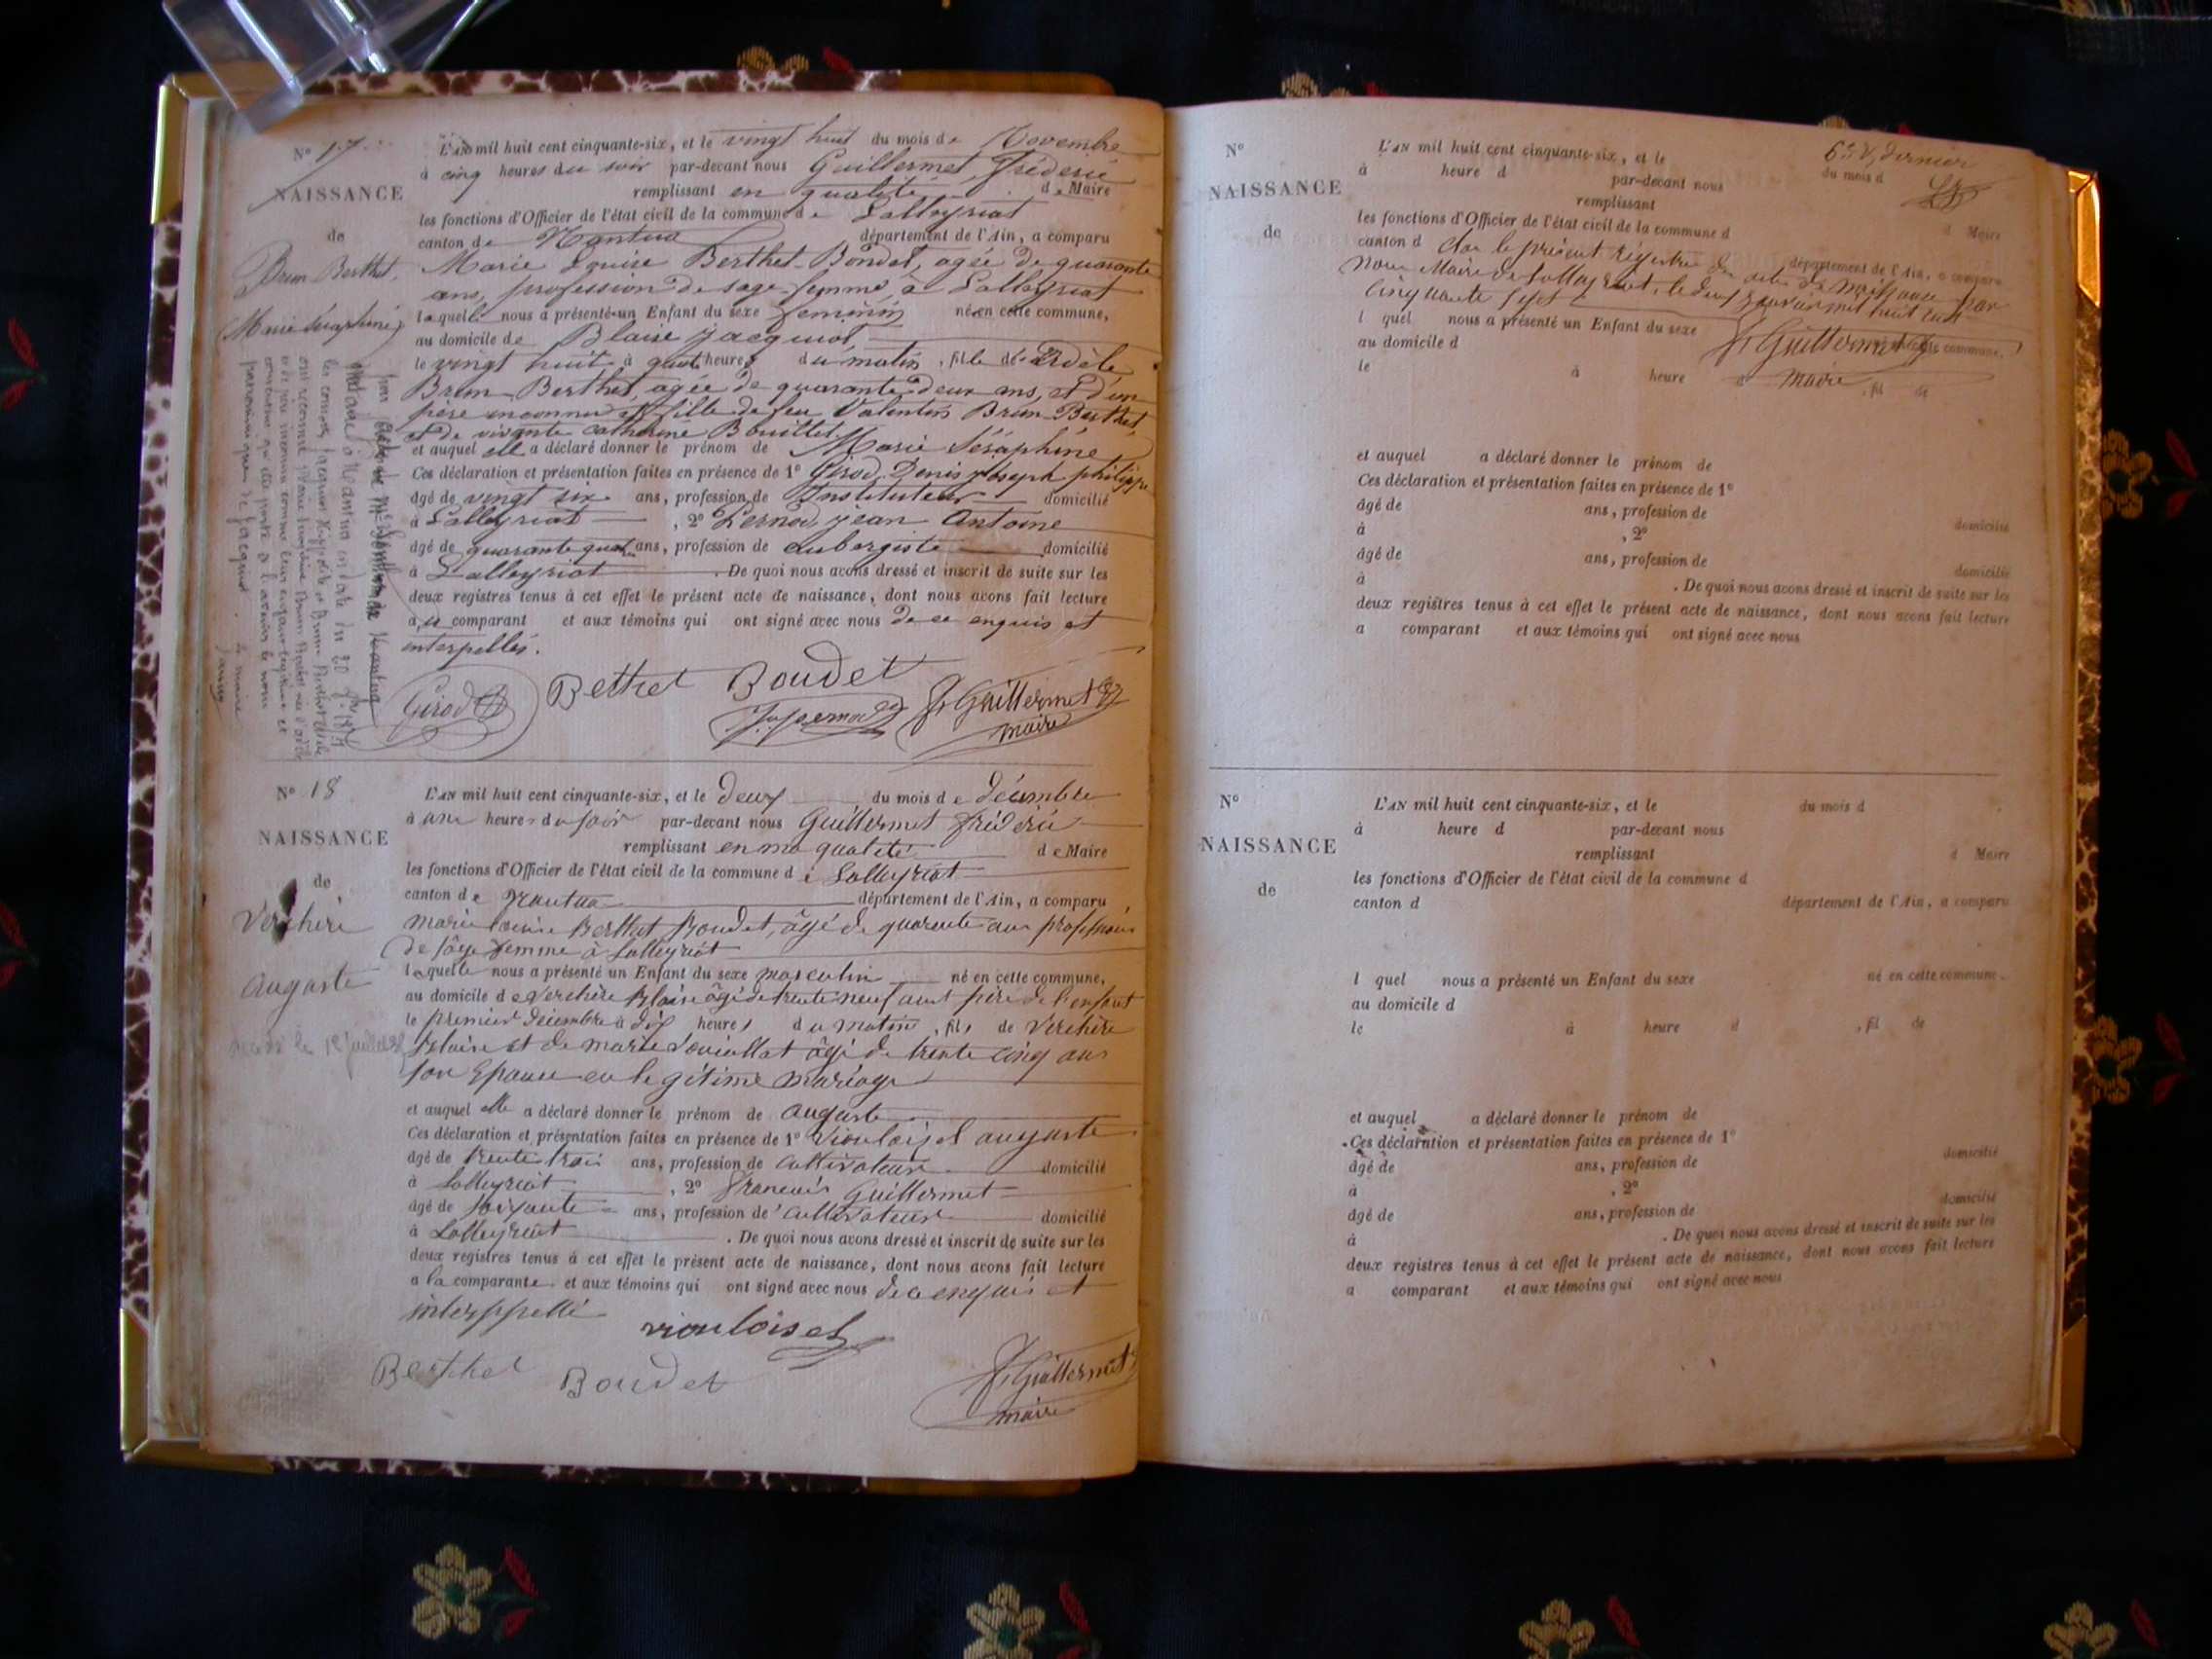 N° 17
NAISSANCE
de
Brun Berthet
Marie Séraphine
L'AN mil huit cent cinquante-six, et le vingt huit du mois de Novembre
à cinq heures du soir par-devant nous Guillermet Fréderic
remplissant en qualité de Maire
les fonctions d'Officier de l'état civil de la commune de Lalleyriat
canton de Nantua département de l'Ain, a comparu
Marie Louise Berthet-Bondet, agée de quarante
ans, profession de sage-femme, à Lalleyriat
laquelle nous a présenté un Enfant du sexe féminin né en cette commune,
au domicile de Blaise Jacquiot
le vingt huit à quatre heures du matin, fille de Adèle
Brun-Berthet, agée de quarante-deux ans, et d'un
père inconnu et fille de feu Valentin Brun-Berthet,
et de vivante Catherine Bouillet
et auquel elle a déclaré donner le prénom de Marie Séraphine
Ces déclaration et présentation faites en présence de 1° Girod Denis Joseph philippe
âgé de vingt six ans, profession de Instituteur domicilié
à Lalleyriat, 2° Pernod jean Antoine
âgé de quarante quatre ans, profession de aubergiste domicilié
à Lalleyriat. De quoi nous avons dressé et inscrit de suite sur les
deux registres tenus à cet effet le présent acte de naissance, dont nous avons fait lecture
au comparant et aux témoins qui ont signé avec nous de ce enquis et
interpellés.
Girod
Berthet Boudet
J. a. pernod
F. Guillermet
maire
N° 18
NAISSANCE
de
Verchère
Auguste
L'AN mil huit cent cinquante-six, et le deux du mois de décembre
à une heure du soir par-devant nous Guillermet fréderic
remplissant en ma qualité de Maire
les fonctions d'Officier de l'état civil de la commune de Lalleyriat
canton de Nantua département de l'Ain, a comparu
marie louise Berthet Boudet, âgé de quarente ans profession
de sâge femme à Lalleyriat
laquelle nous a présenté un Enfant du sexe masculin né en cette commune,
au domicile de Verchère Blaise âgé de trente neuf ans père de l'enfant
le premier décembre à dix heures du matin, fils de Verchère
Blaise et de marie âgé de trente cinq ans
son Epouse en legitime mariage
et auquel elle a déclaré donner le prénom de auguste
Ces déclaration et présentation faites en présence de 1° Viouloiset auguste
âgé de trente trois ans, profession de cultivateur domicilié
à Lalleyriat, 2° francois Guillermet
âgé de soixante ans, profession de cultivateur domicilié
à Lalleyriat. De quoi nous avons dressé et inscrit de suite sur les
deux registres tenus à cet effet le présent acte de naissance, dont nous avons fait lecture
a la comparante et aux témoins qui ont signé avec nous de ce enquis et
interppellé
viouloiset
Berthet Boudet
F. Guillermet
maire
6e V, dernier
N°
NAISSANCE
de
L'AN mil huit cent cinquante-six, et le du mois d
à heure d par-devant nous
remplissant d Maire
les fonctions d'Officier de l'état civil de la commune d
canton d département de l'Ain, a comparu
clos le présent régistre des actes de naissance par
nous Maire de Lalleyriat, le deux janvier mil huit cent
cinquante sept
l quel nous a présenté un Enfant du sexe né en cette commune,
F. Guillermet
maire
au domicile d
le à heure d , fil de
et auquel a déclaré donner le prénom de
Ces déclaration et présentation faites en présence de 1°
âgé de ans, profession de domicilié
à , 2°
âgé de ans, profession de domicilié
à . De quoi nous avons dressé et inscrit de suite sur les
deux registres tenus à cet effet le présent acte de naissance, dont nous avons fait lecture
a comparant et aux témoins qui ont signé avec nous
N°
NAISSANCE
de
L'AN mil huit cent cinquante-six, et le du mois d
à heure d par-devant nous
remplissant d Maire
les fonctions d'Officier de l'état civil de la commune d
canton d département de l'Ain, a comparu
l quel nous a présenté un Enfant du sexe né en cette commune,
au domicile d
le à heure d , fil de
et auquel a déclaré donner le prénom de
Ces déclaration et présentation faites en présence de 1°
âgé de ans, profession de domicilié
à , 2°
âgé de ans, profession de domicilié
à . De quoi nous avons dressé et inscrit de suite sur les
deux registres tenus à cet effet le présent acte de naissance, dont nous avons fait lecture
a comparant et aux témoins qui ont signé avec nous